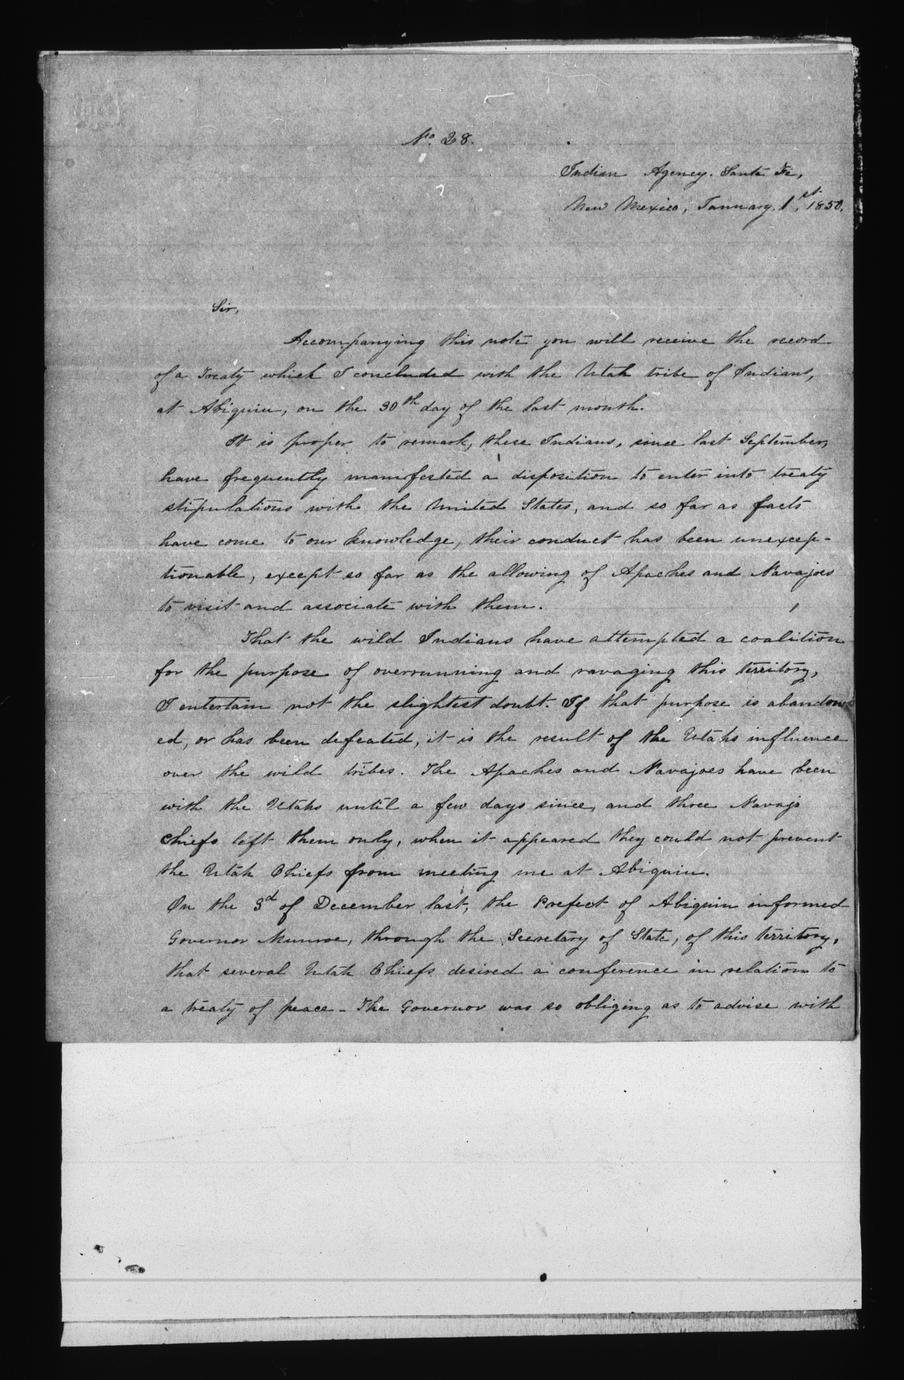 No. 28.
Indian Agency. Santa Fe,
New Mexico, January, 1st, 1850.
Sir,
Accompanying this note you will receive the record
of a Treaty which I concluded with the Utah tribe of Indians,
at Abiquiu, on the 30th day of the last month.
It is proper to remark, these Indians, since last September,
have frequently manifested a disposition to enter into treaty
stipulations with the United States, and so far as facts
have come to our knowledge, their conduct has been unexcep-
tionable, except so far as the allowing of Apaches and Navajoes
to visit and associate with them.
That the wild Indians have attempted a coalition
for the purpose of overrunning and ravaging this territory,
I entertain not the slightest doubt. If that purpose is abandon
ed, or has been defeated, it is the result of the Utahs influence
over the wild tribes. The Apaches and Navajoes have been
with the Utahs until a few days since, and three Navajo
Chiefs left them only, when it appeared they could not prevent
the Utah Chiefs from meeting me at Abiquiu.
On the 3d of December last, the Prefect of Abiquiu informed
Governor Munroe, through the Secretary of State, of this territory,
that several Utah Chiefs desired a conference in relation to
a treaty of peace - The Governor was so obliging as to advise with